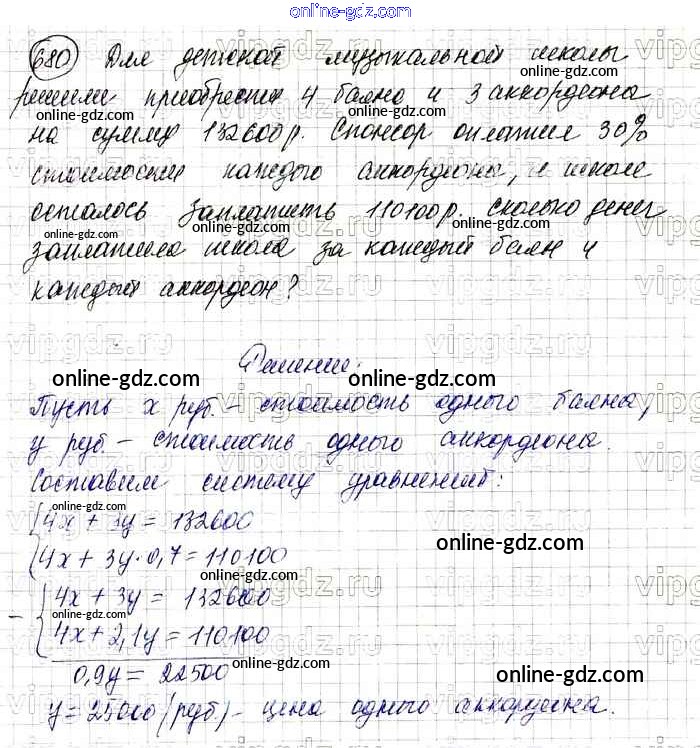 online-gdz.com
680 Для детской музыкальной школы
решили приобрести 4 баяна и 3 аккордеона
на сумму 132600р. Спонсор оплатил 30%
стоимости каждого аккордеона, и школе
осталось заплатить 110100р. сколько денег
заплатила школа за каждый баян и
каждый аккордеон?
Решение:
online-gdz.com online-gdz.com
Пусть x руб. - стоимость одного баяна,
y руб. - стоимость одного аккордеона.
Составим систему уравнений:
4x + 3y = 132600
4x + 3y·0,7 = 110100
online-gdz.com
4x + 3y = 132600
- 4x + 2,1y = 110100
0,9y = 22500
online-gdz.com
y = 25000 (руб) - цена одного аккордеона.
online-gdz.com